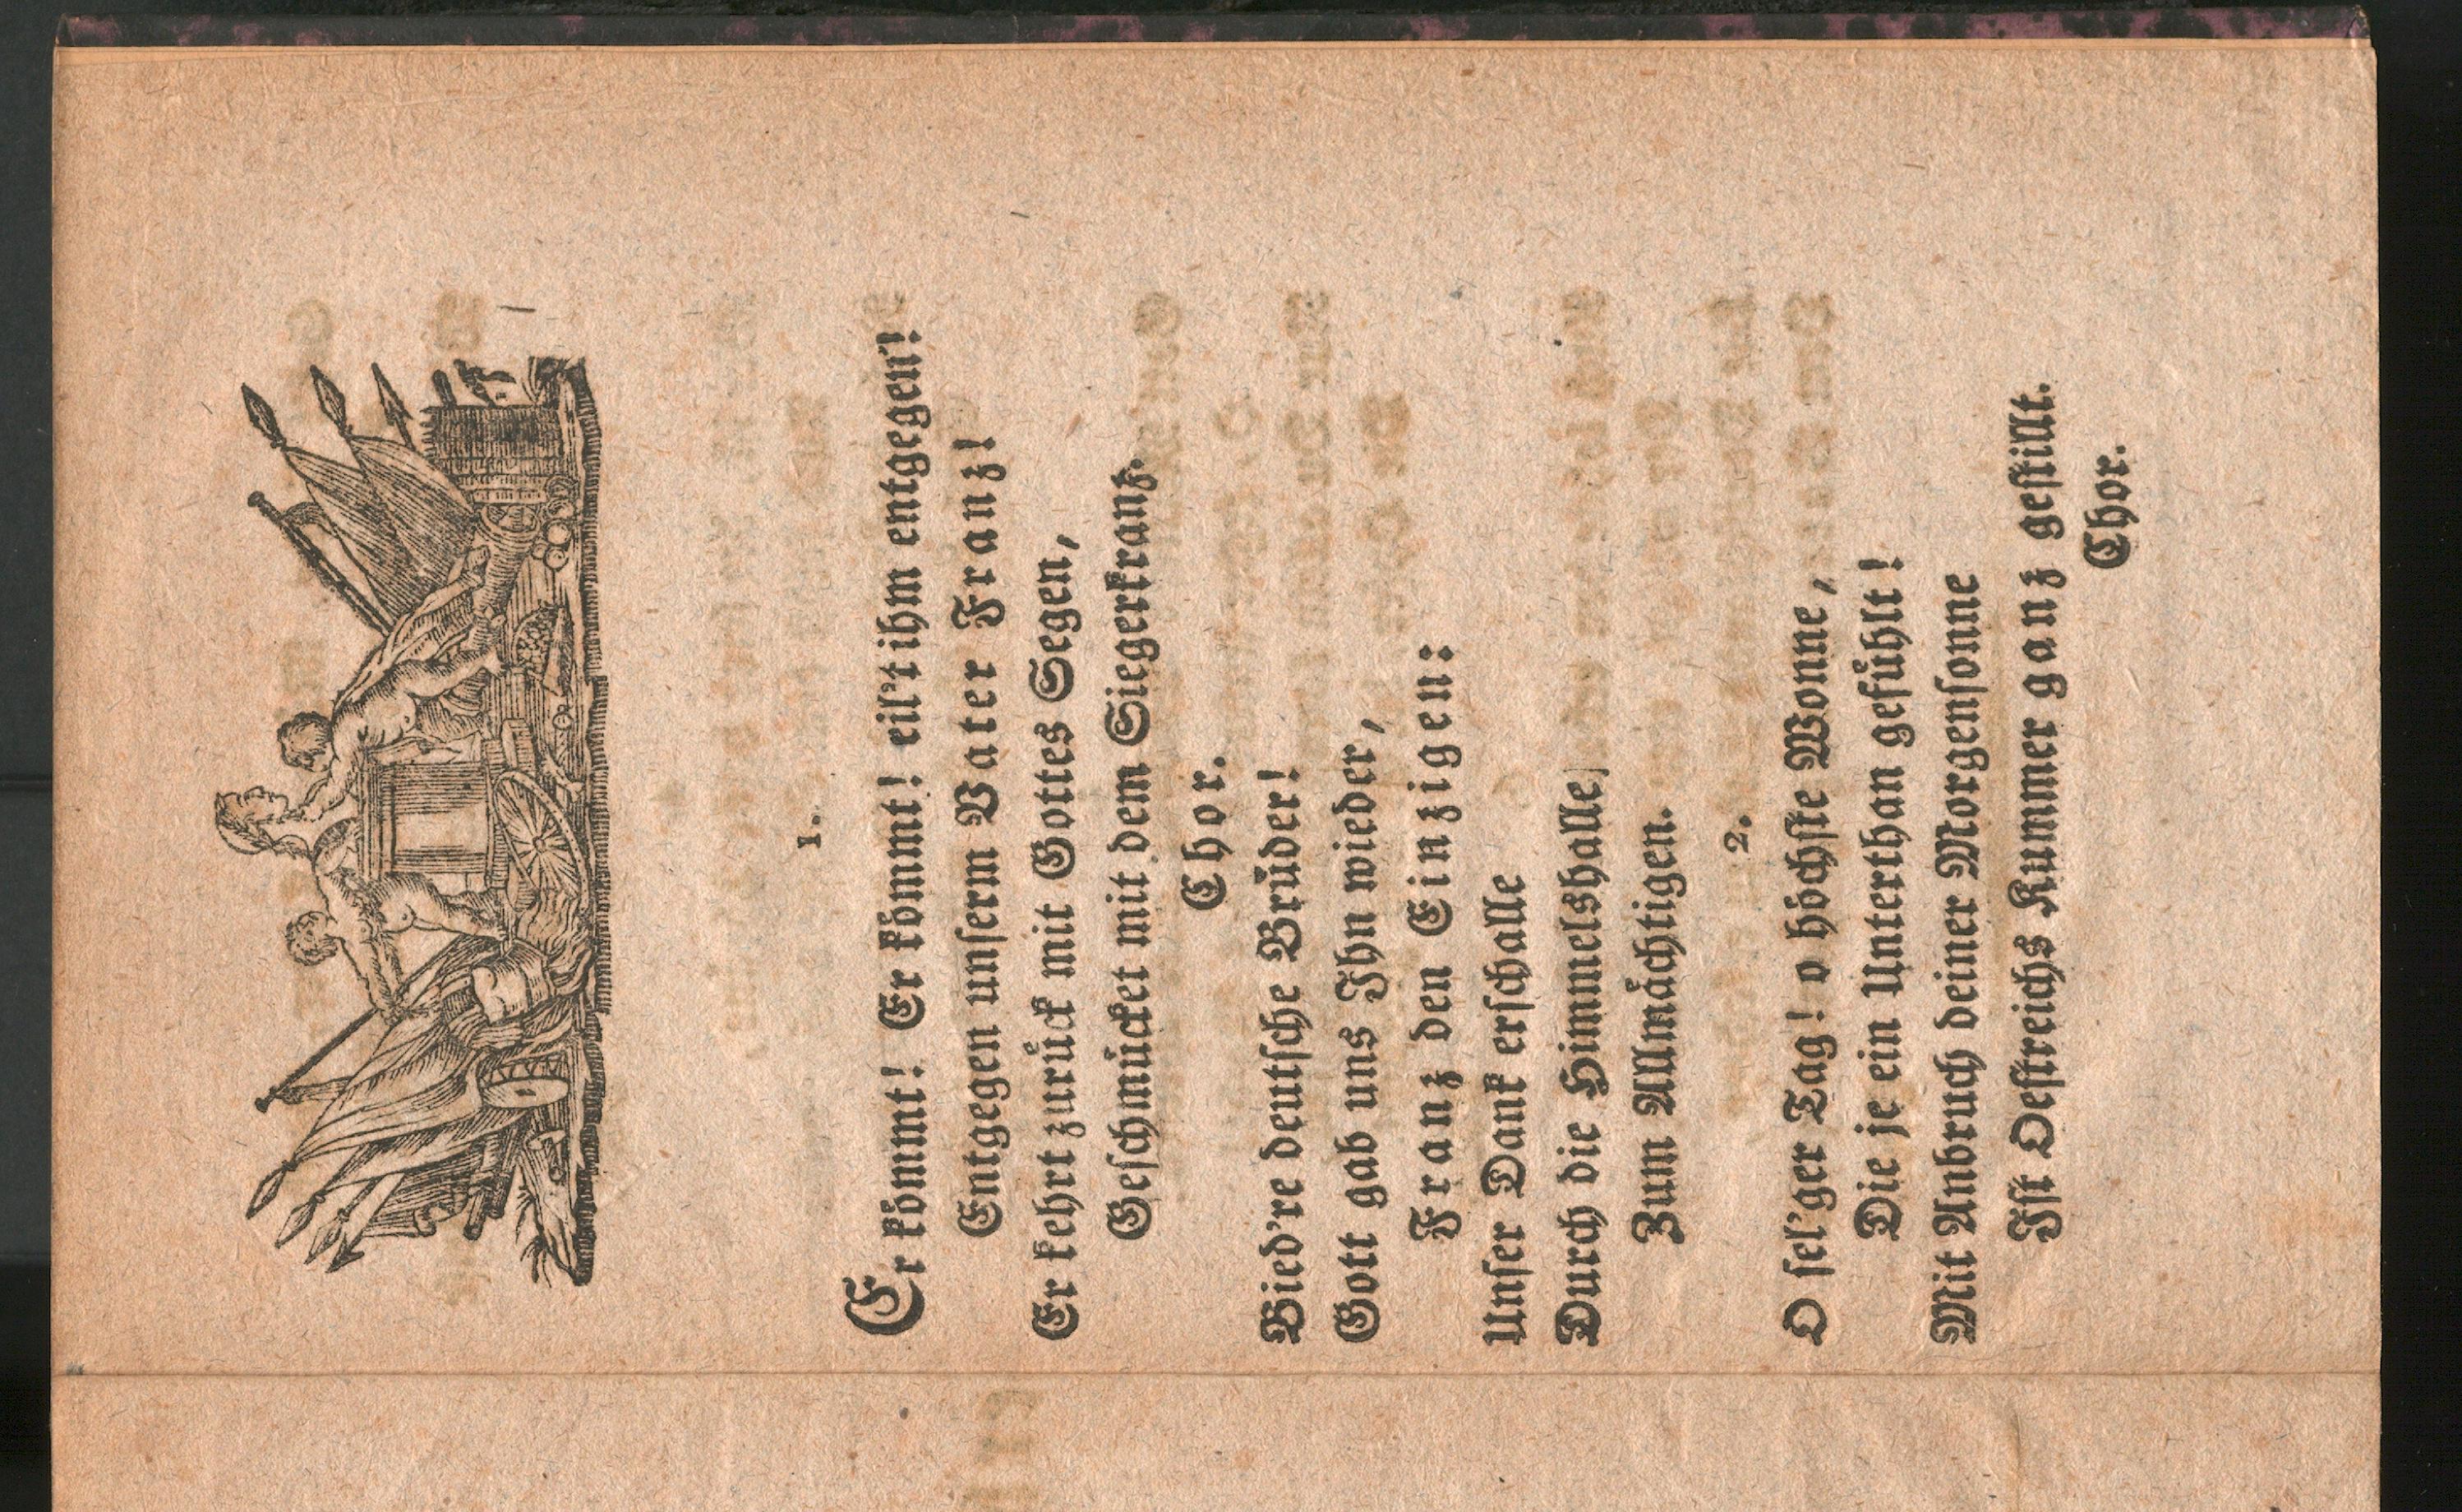 1.
Er kömmt! Er kömmt! eil't ihm entgegen!
Entgegen unserm Vater Franz!
Er kehrt zurück mit Gottes Segen,
Geschmücket mit dem Siegerkranz.
Chor.
Bied're deutsche Brüder!
Gott gab uns Ihn wieder,
Franz den Einzigen:
Unser Dank erschalle
Durch die Himmelshalle,
Zum Allmächtigen.
2.
O sel'ger Tag! o höchste Wonne,
Die je ein Unterthan gefühlt!
Mit Anbruch deiner Morgensonne
Ist Oestreichs Kummer ganz gestillt.
Chor.